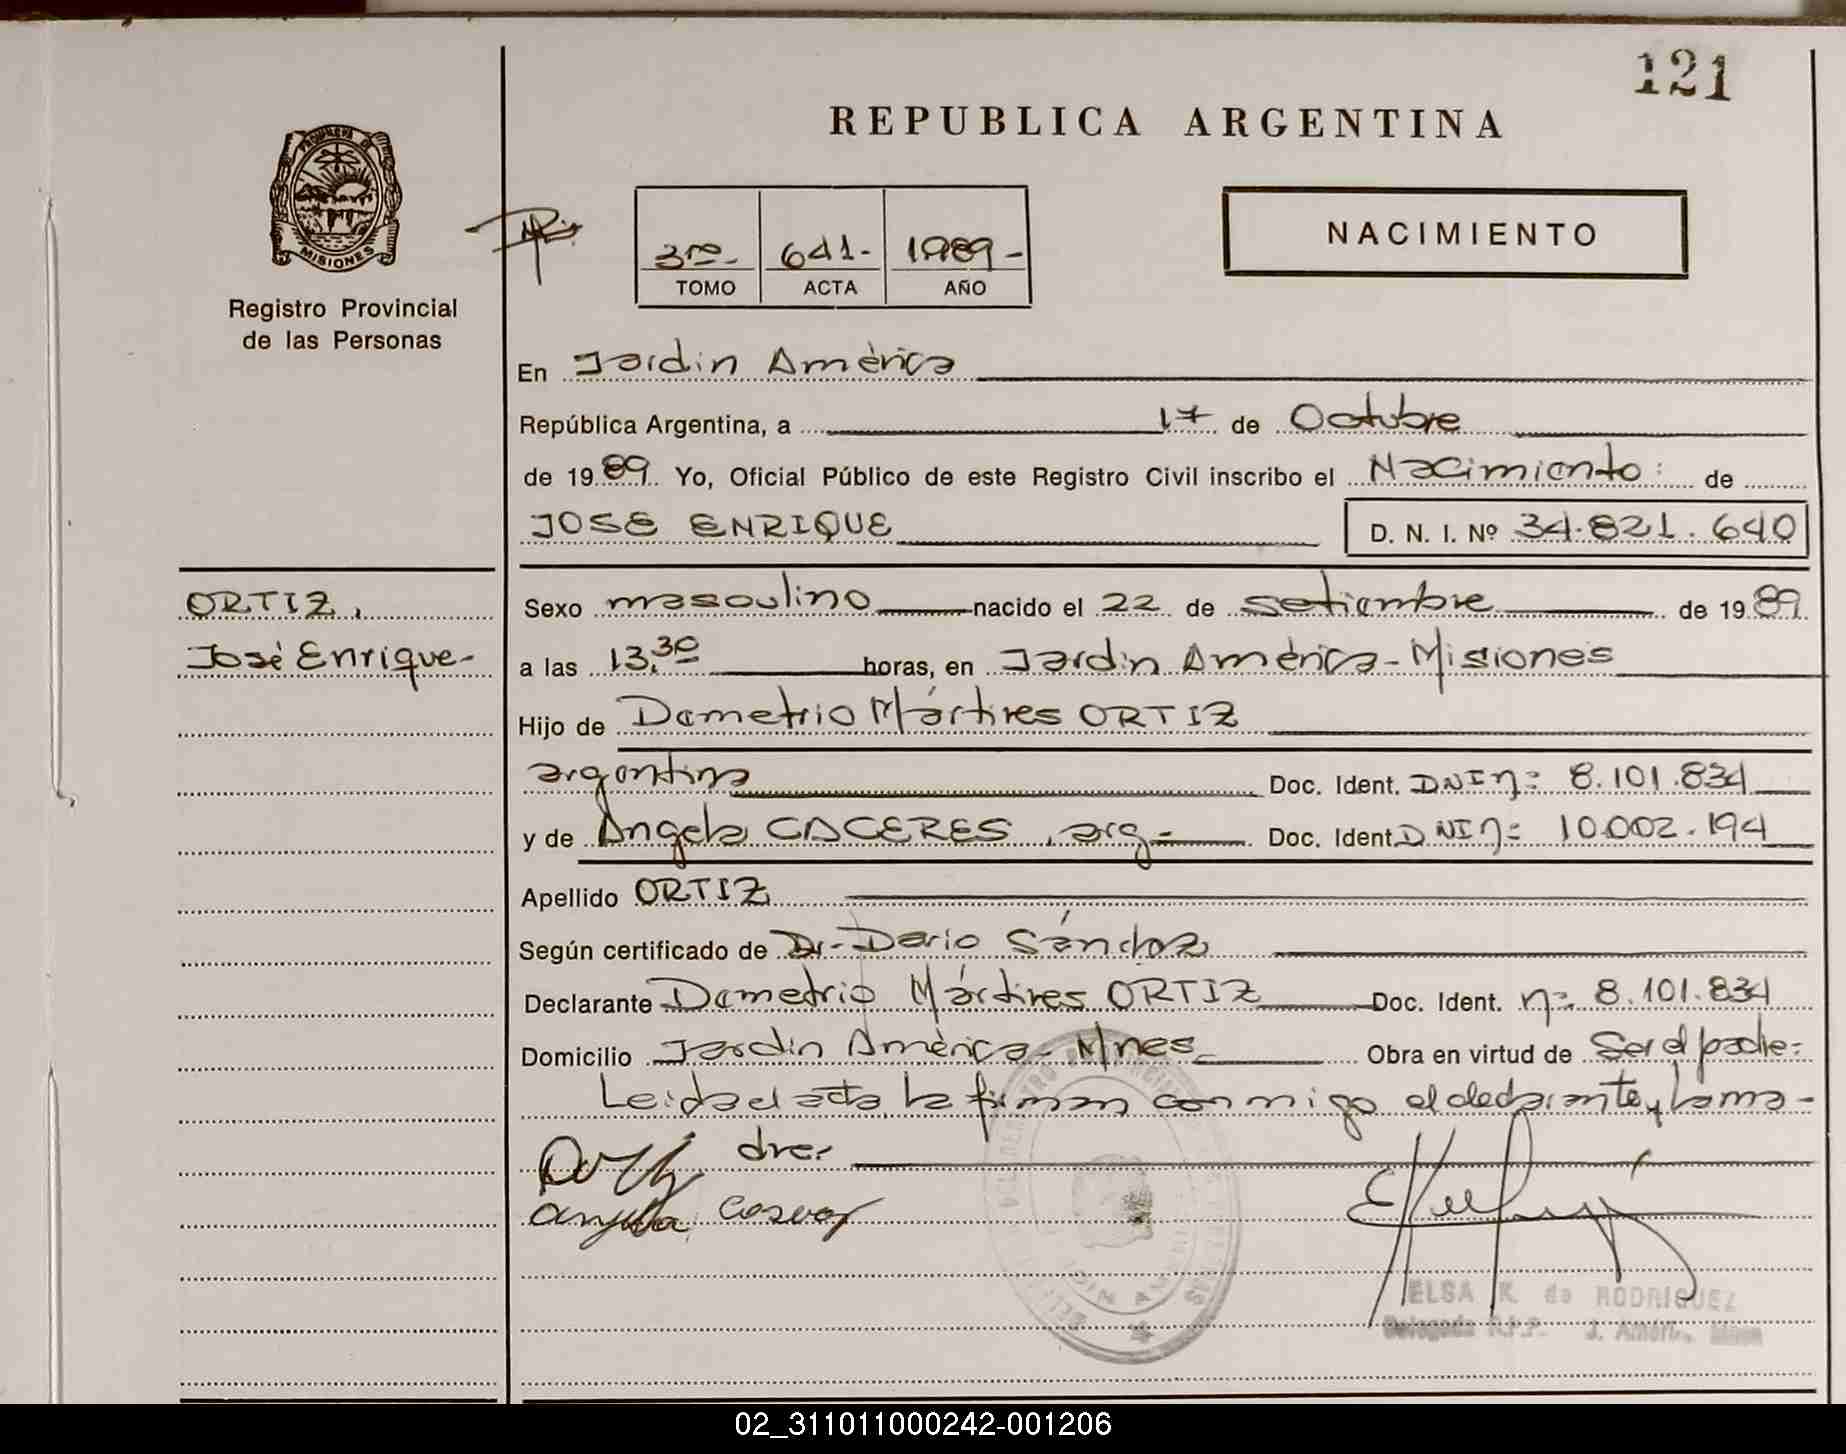 121
REPUBLICA ARGENTINA
PROVINCIA DE
MISIONES
Registro Provincial
de las Personas
3ro - 641 - 1989 -
TOMO ACTA AÑO
NACIMIENTO
En Jardín América
República Argentina, a 17 de Octubre
de 1989 Yo, Oficial Público de este Registro Civil inscribo el Nacimiento: de
JOSE ENRIQUE D. N. I. Nº 34.821.640
ORTIZ,
José Enrique-
Sexo masculino nacido el 22 de setiembre de 1989
a las 13,30 horas, en Jardín América - Misiones
Hijo de Demetrio Mártires ORTIZ
argentina Doc. Ident. DNI nº 8.101.834
y de Angela CACERES, arg.- Doc. Ident. DNI nº 10.002.194
Apellido ORTIZ
Según certificado de Dr. Dario Sánchez
Declarante Demetrio Mártires ORTIZ Doc. Ident. nº 8.101.834
Domicilio Jardín América - Mnes. Obra en virtud de Ser el padre:
Leida el acta, la firman conmigo el declarante y la ma-
dre.
ELSA K. de RODRIGUEZ
Delegada R.P.P. J. Amér.
02_311011000242-001206